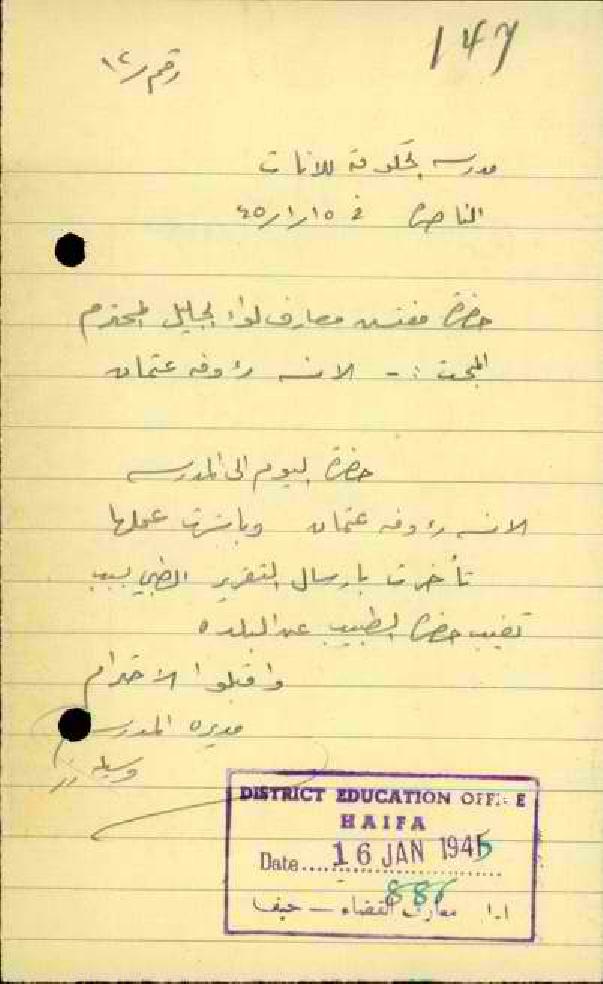 147
رقم ١٢/
مدرسة الحكومة للاناث
الناصرة في ٤٥/١/١٥
حضرة مفتش معارف لواء الجليل المحترم
المبحث :- الانسه رؤوفه عثمان
حضرت اليوم الى المدرسه
الانسه رؤوفه عثمان وباشرت عملها
تأخرت بارسال التقرير الطبي بسبب
تغيب حضرة الطبيب عن البلده
واقبلوا الاحترام
مديرة المدرسه
DISTRICT EDUCATION OFFICE
HAIFA
Date.... 16 JAN 1945
886
معارف القضاء — حيفا